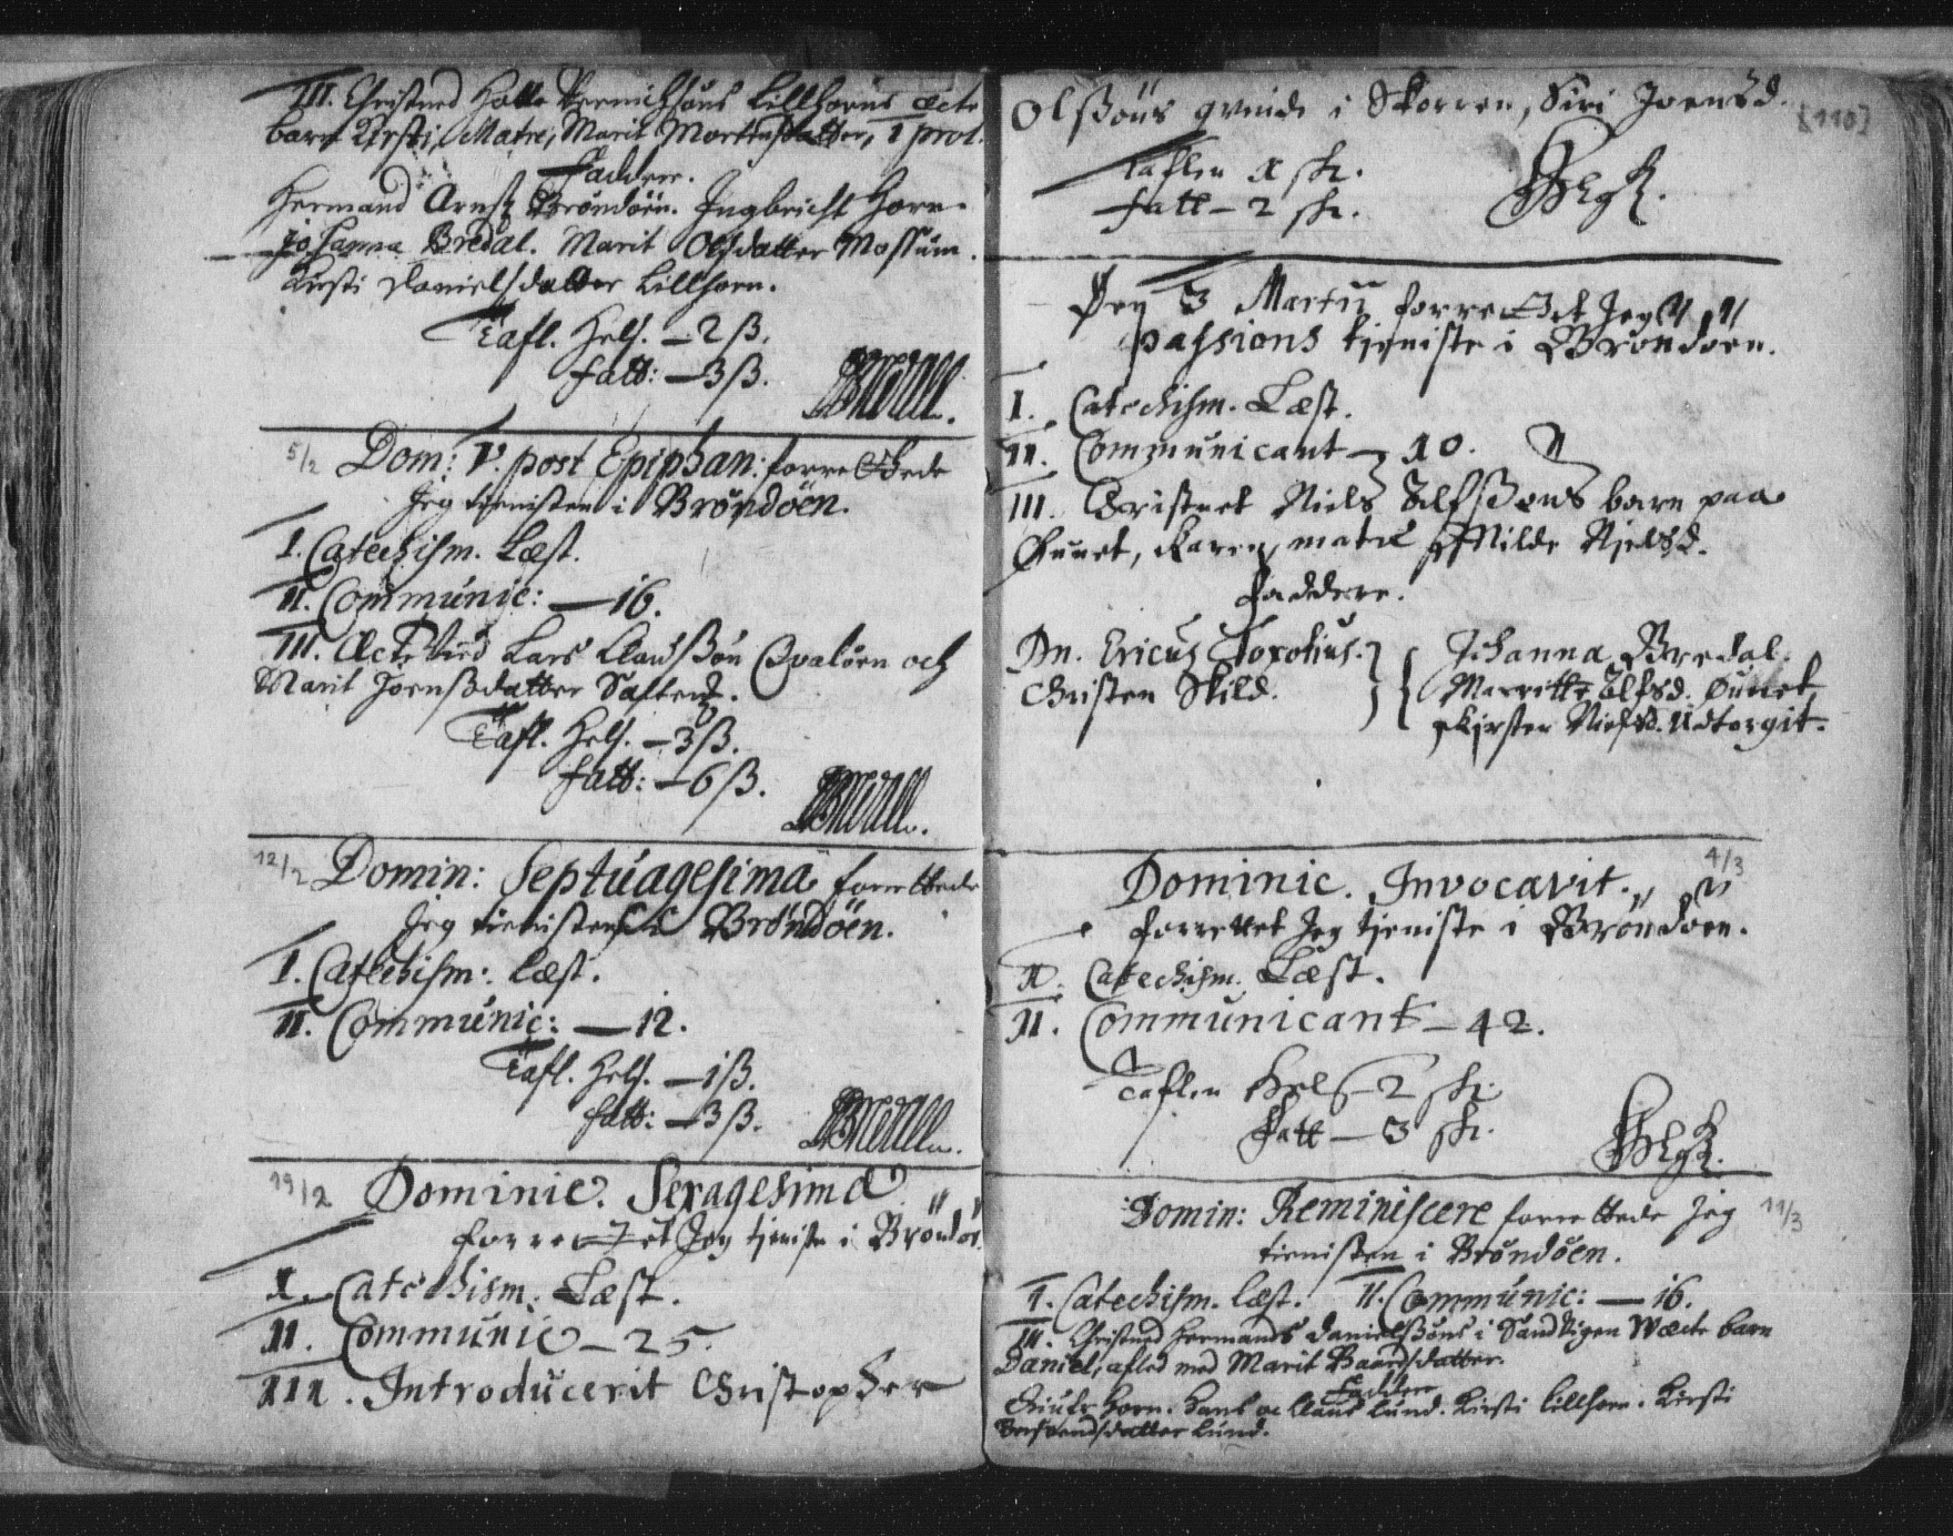 III. Christned Halle Bernichsøns Lillhorns ecte
barn Kirsti, Matre, Marit Mortensdatter, 1 prol.
Faddere.
Hermand Arentz Brøndöen. Ingbricht Horn.
Johanna Bredal. Marit Olsdatter Mossüm.
Kirsti Danielsdatter Lillhorn.
Tafl. Hels. – 2 ß.
Fatt: – 3 ß.
5/2 Dom: V. post Epiphan: forrettede
Jeg tienisten i Brøndöen.
I. Catechism. Læst.
II. Communic: – 16.
III. Ecte Vied Lars Clausßøn Hvalöen och
Marit Joensdatter Salten.
Tafl. Hels. – 3 ß.
Fatt: – 6 ß.
12/2 Domin: Septuagesima forrettede
Jeg tienisten i Brøndöen.
I. Catechism: Læst.
II. Communic: – 12.
Tafl. Hels. – 1 ß.
Fatt: – 3 ß.
19/2 Dominic. Sexagesima
forrettet Jeg tjeniste i Brøndøe
I. Catechism. Læst.
II. Communic – 25.
III. Introducerit Christopher
[110]
Olßøns qvinde i Skorren, Siri Joensd.
Taflen 1 sk.
Fatt – 2 sk.
Den 3 Martii forrettet Jeg
passions tjeniste i Brøndøen.
I. Catechism. Læst.
II. Communicant – 10.
III. Christnet Niels Alfßøns barn paa
Øuuet, Karen, matre Milde Njelsd.
Faddere.
Dn. Ericus Toxotius. Johanna Bredal.
Christen Skild. Marritte Alfsd. Øuuet
Kjrsten Nielsd. Udtorgit.
4/3
Dominic. Invocavit.
forrettet Jeg tjeniste i Brøndøen.
I. Catechism. Læst.
II. Communicant – 42.
Taflen Hels – 2 sk.
Fatt – 3 sk.
Domin: Reminiscere forrettede Jeg 11/3
tienisten i Brøndöen.
I. Catechism. læst. II. Communic: – 16.
III. Christned Hermands Danielsßøns i Sandvigen Wæcte barn
Daniel, afled med Marit Baardsdatter.
Faddere
Horn. Hans oc Claus Lund. Kirsti Lillhorn. Kirsti
Lund.